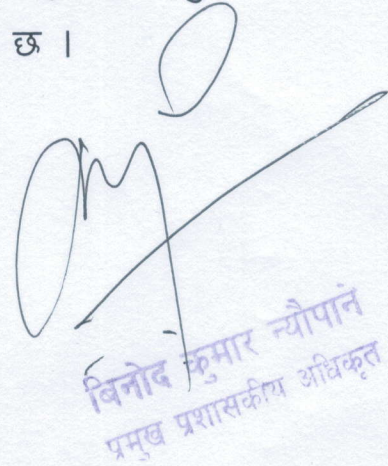 छ ।
बिनोद कुमार न्यौपाने
प्रमुख प्रशासकीय अधिकृत